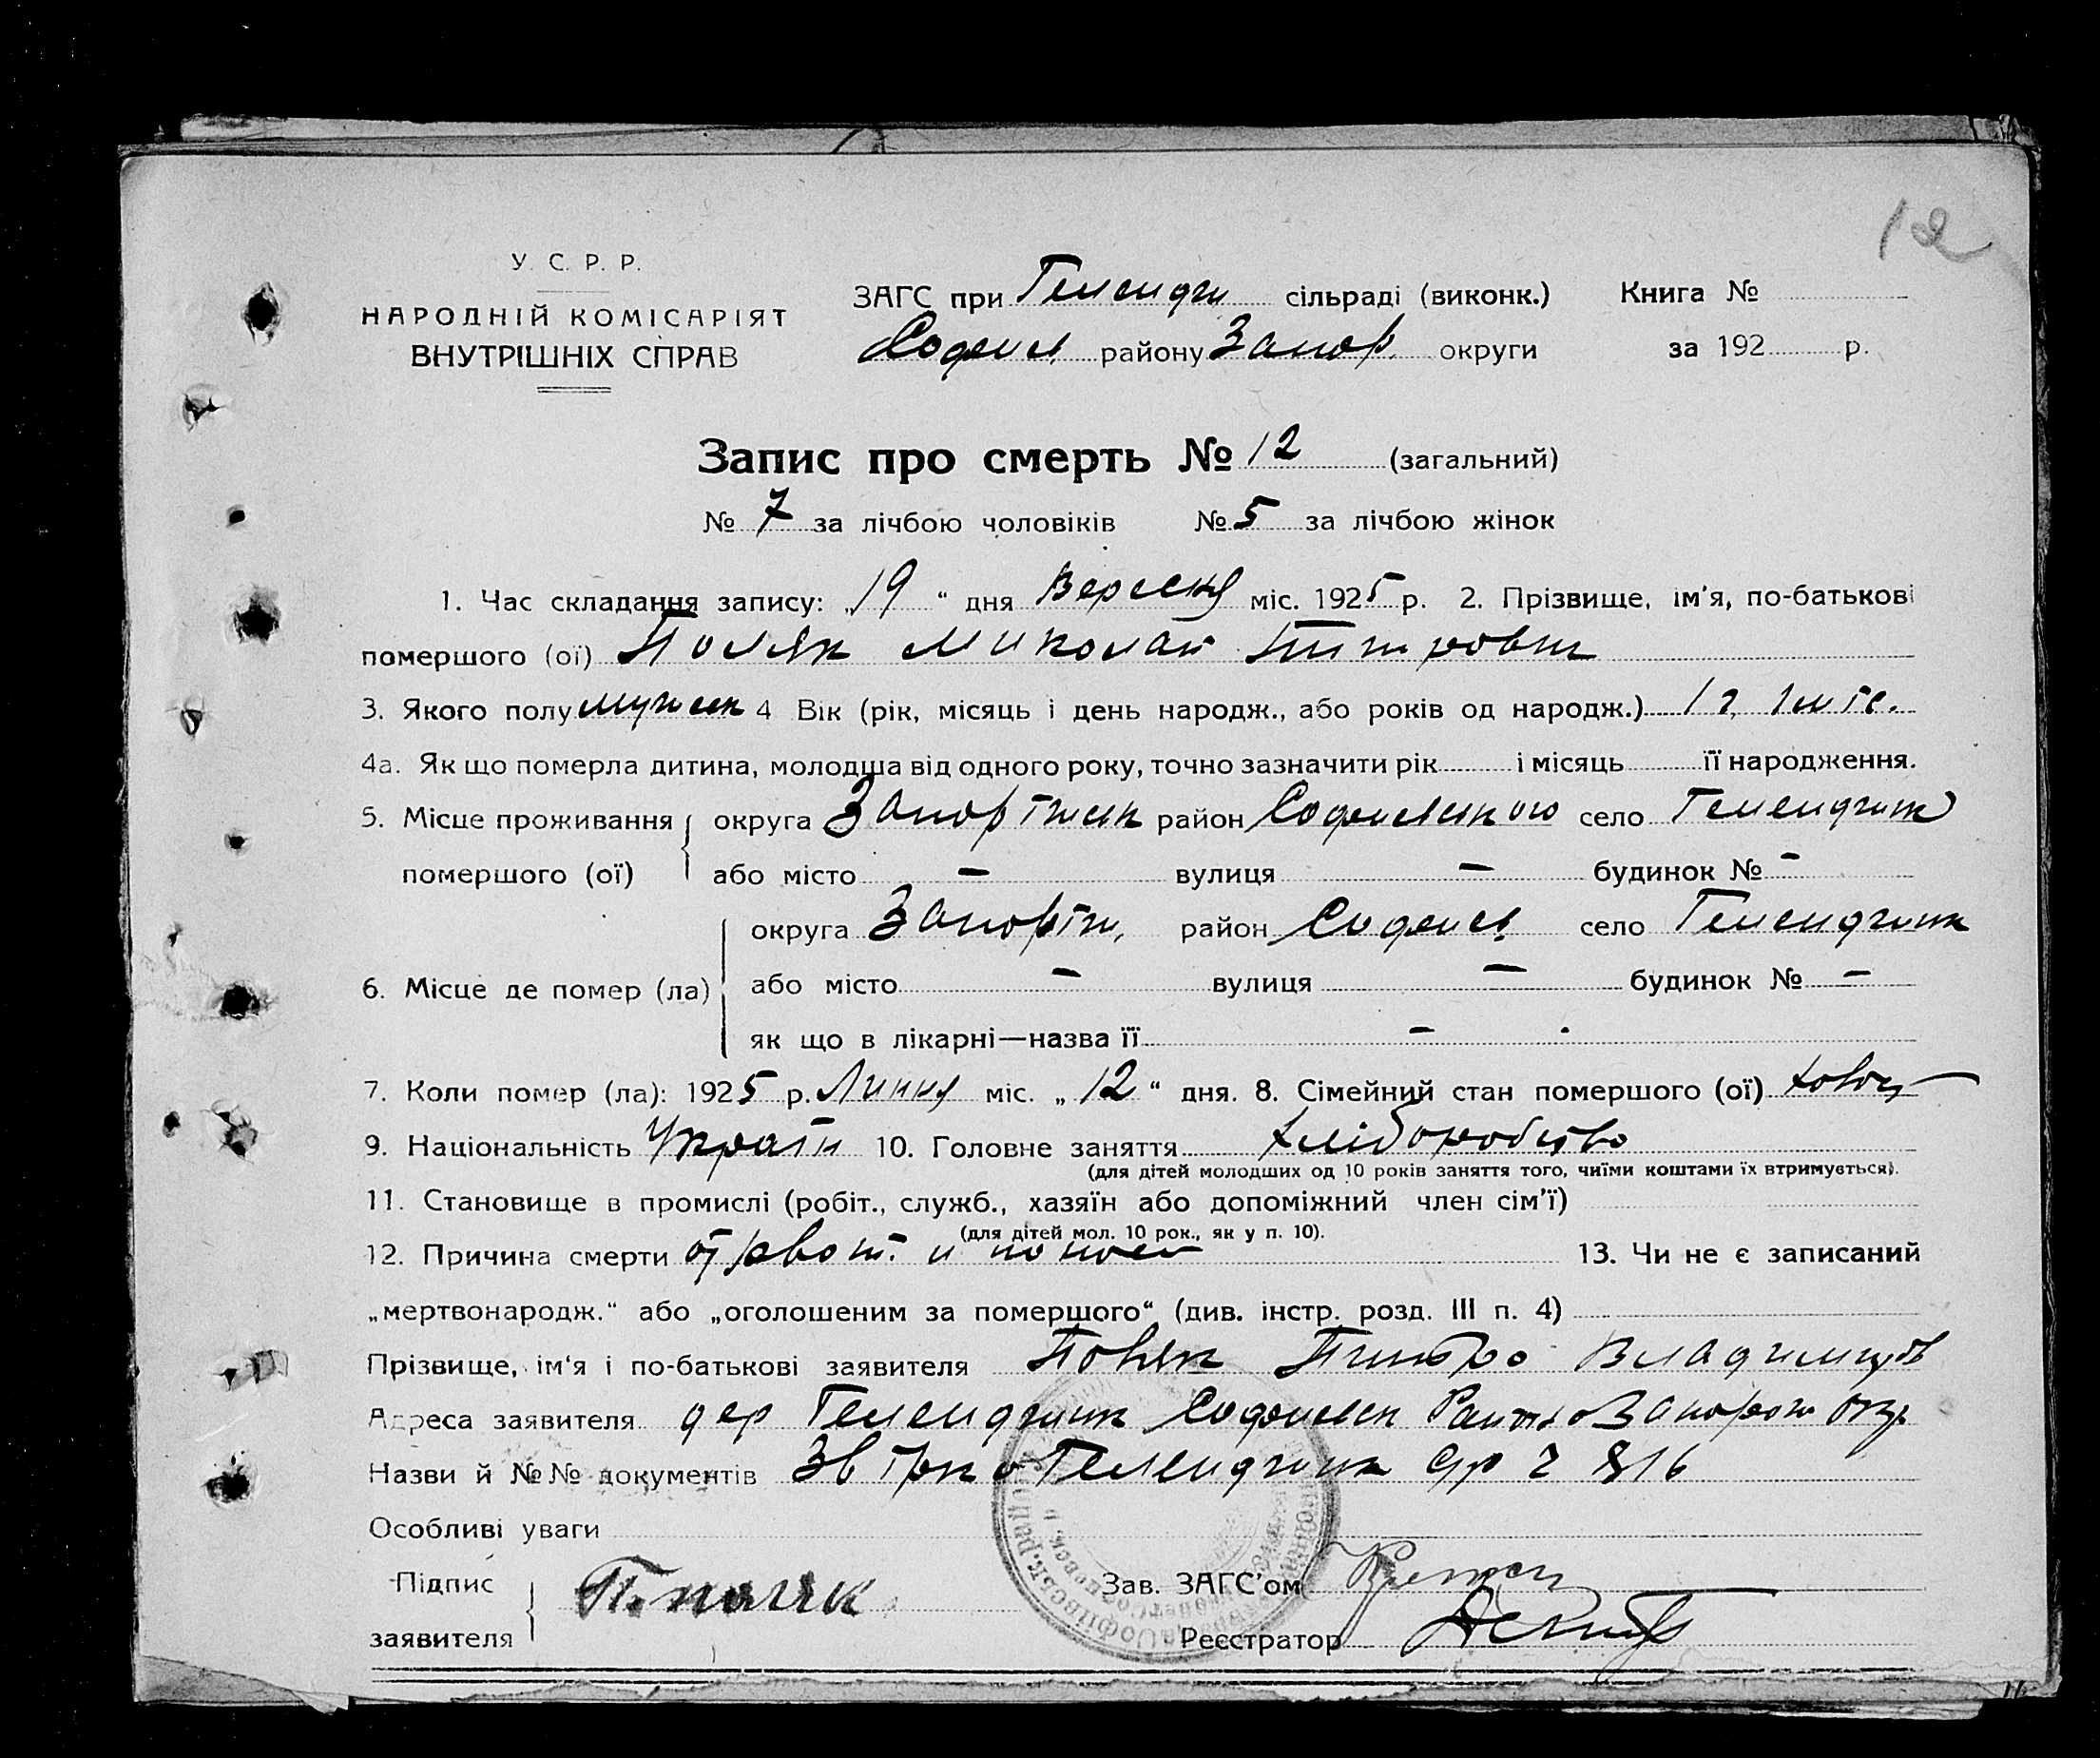 12
У. С. Р. Р.
НАРОДНІЙ КОМІСАРІЯТ
ВНУТРІШНІХ СПРАВ
ЗАГС при Геленджи сільраді (виконк.) Книга №
Софиев. району Запор. округи за 192 р.
Запис про смерть № 12 (загальний)
№ 7 за лічбою чоловіків № 5 за лічбою жінок
1. Час складання запису: „19“ дня Вересня міс. 1925 р. 2. Прізвище, ім'я, по-батькові
помершого (ої) Поляк Миколай
3. Якого полу мужеск 4 Вік (рік, місяць і день народж., або років од народж.) 1 г. 1 міс.
4а. Як що померла дитина, молодша від одного року, точно зазначити рік і місяць її народження.
5. Місце проживання округа район Софиевского село Геленджик
помершого (ої) або місто — вулиця — будинок № —
округа Запоріж, район Софиев. село Геленджик
6. Місце де помер (ла) або місто — вулиця — будинок № —
як що в лікарні—назва її —
7. Коли помер (ла): 1925 р. Липня міс. „12“ дня. 8. Сімейний стан помершого (ої)
9. Національність Україн 10. Головне заняття хліборобство
(для дітей молодших од 10 років заняття того, чиїми коштами їх втримується).
11. Становище в промислі (робіт., служб., хазяїн або допоміжний член сім'ї)
(для дітей мол. 10 рок., як у п. 10).
12. Причина смерти от рвот. и понос 13. Чи не є записаний
„мертвонародж.“ або „оголошеним за помершого“ (див. інстр. розд. III п. 4)
Прізвище, ім'я і по-батькові заявителя Поляк Питро Владимиров
Адреса заявителя дер Геленджик Софиевск Запорож Окр.
Назви й №№ документів Геленджик 816
Особливі уваги
Підпис П. Поляк Зав. ЗАГС'ом
заявителя Реєстратор